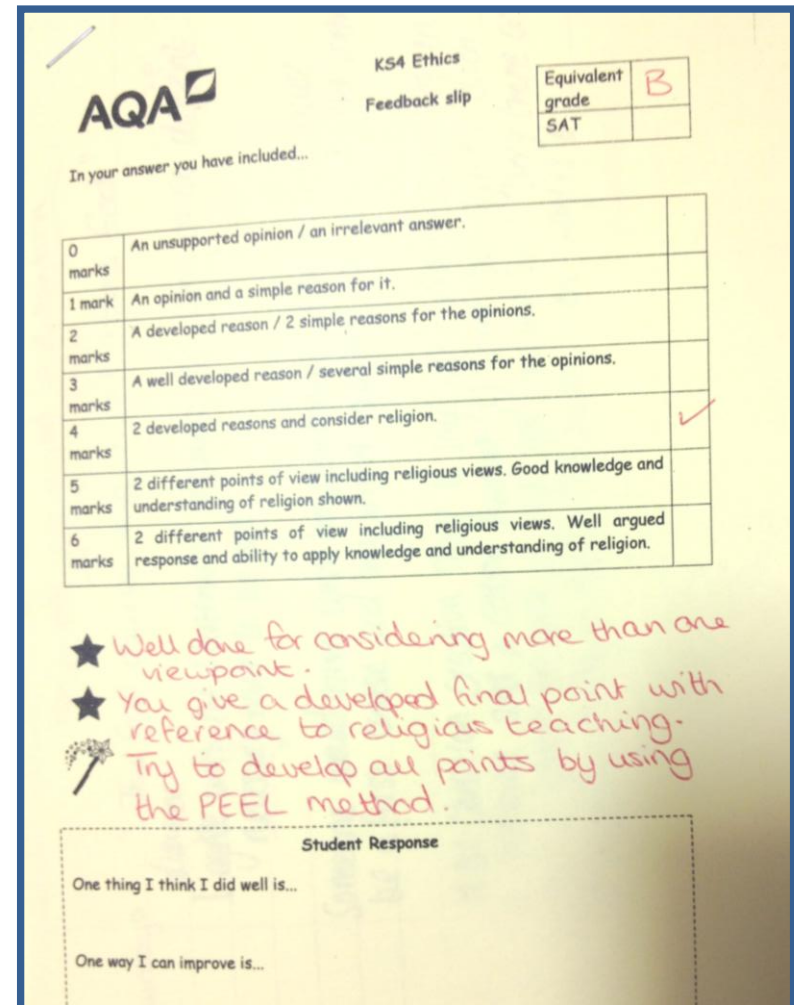 AQA
KS4 Ethics
Feedback slip
Equivalent
grade
B
SAT
In your answer you have included...
0
marks
An unsupported opinion / an irrelevant answer.
1 mark
An opinion and a simple reason for it.
2
marks
A developed reason / 2 simple reasons for the opinions.
3
marks
A well developed reason / several simple reasons for the opinions.
4
marks
2 developed reasons and consider religion.
5
marks
2 different points of view including religious views. Good knowledge and
understanding of religion shown.
6
marks
2 different points of view including religious views. Well argued
response and ability to apply knowledge and understanding of religion.
Well done for considering more than one
viewpoint.
You give a developed final point with
reference to religious teaching.
Try to develop all points by using
the PEEL method.
Student Response
One thing I think I did well is...
One way I can improve is...